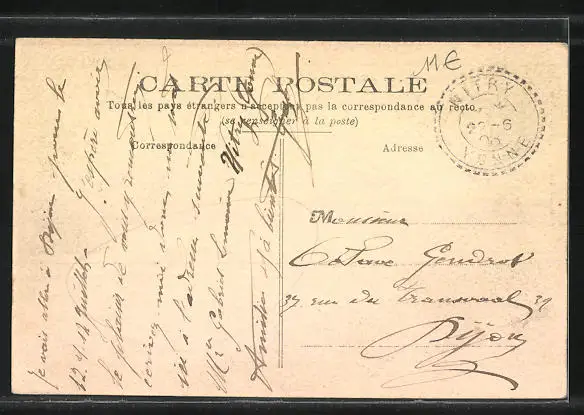 11€
CARTE POSTALE
Tous les pays étrangers n'acceptent pas la correspondance au recto
(se renseigner à la poste)
Correspondance
Adresse
NITRY
22-6
YONNE
Monsieur
Octave Gendrot
37 rue du Transvaal 39
Dijon
Je vais aller à Dijon pour le
12 et 14 Juillet. J'espère avoir
le plaisir de vous rencontrer
écrivez-moi donc un mot
ici à l'adresse suivante
Mr Gabriel Simon Nitry Yonne
Amitiés et à bientôt